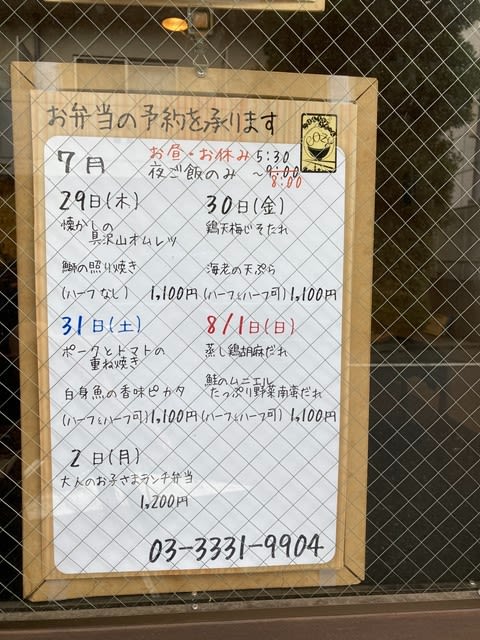 お弁当の予約を承ります
7月 お昼・お休み 5:30
夜ご飯のみ ~9:00
8:00
29日(木)
懐かしの
具沢山オムレツ
鰤の照り焼き
(ハーフなし) 1,100円
30日(金)
鶏天梅じそだれ
海老の天ぷら
(ハーフ&ハーフ可) 1,100円
31日(土)
ポークとトマトの
重ね焼き
白身魚の香味ピカタ
(ハーフ&ハーフ可) 1,100円
8/1日(日)
蒸し鶏胡麻だれ
鮭のムニエル
たっぷり野菜南蛮だれ
(ハーフ&ハーフ可) 1,100円
2日(月)
大人のお子さまランチ弁当
1,200円
03-3331-9904